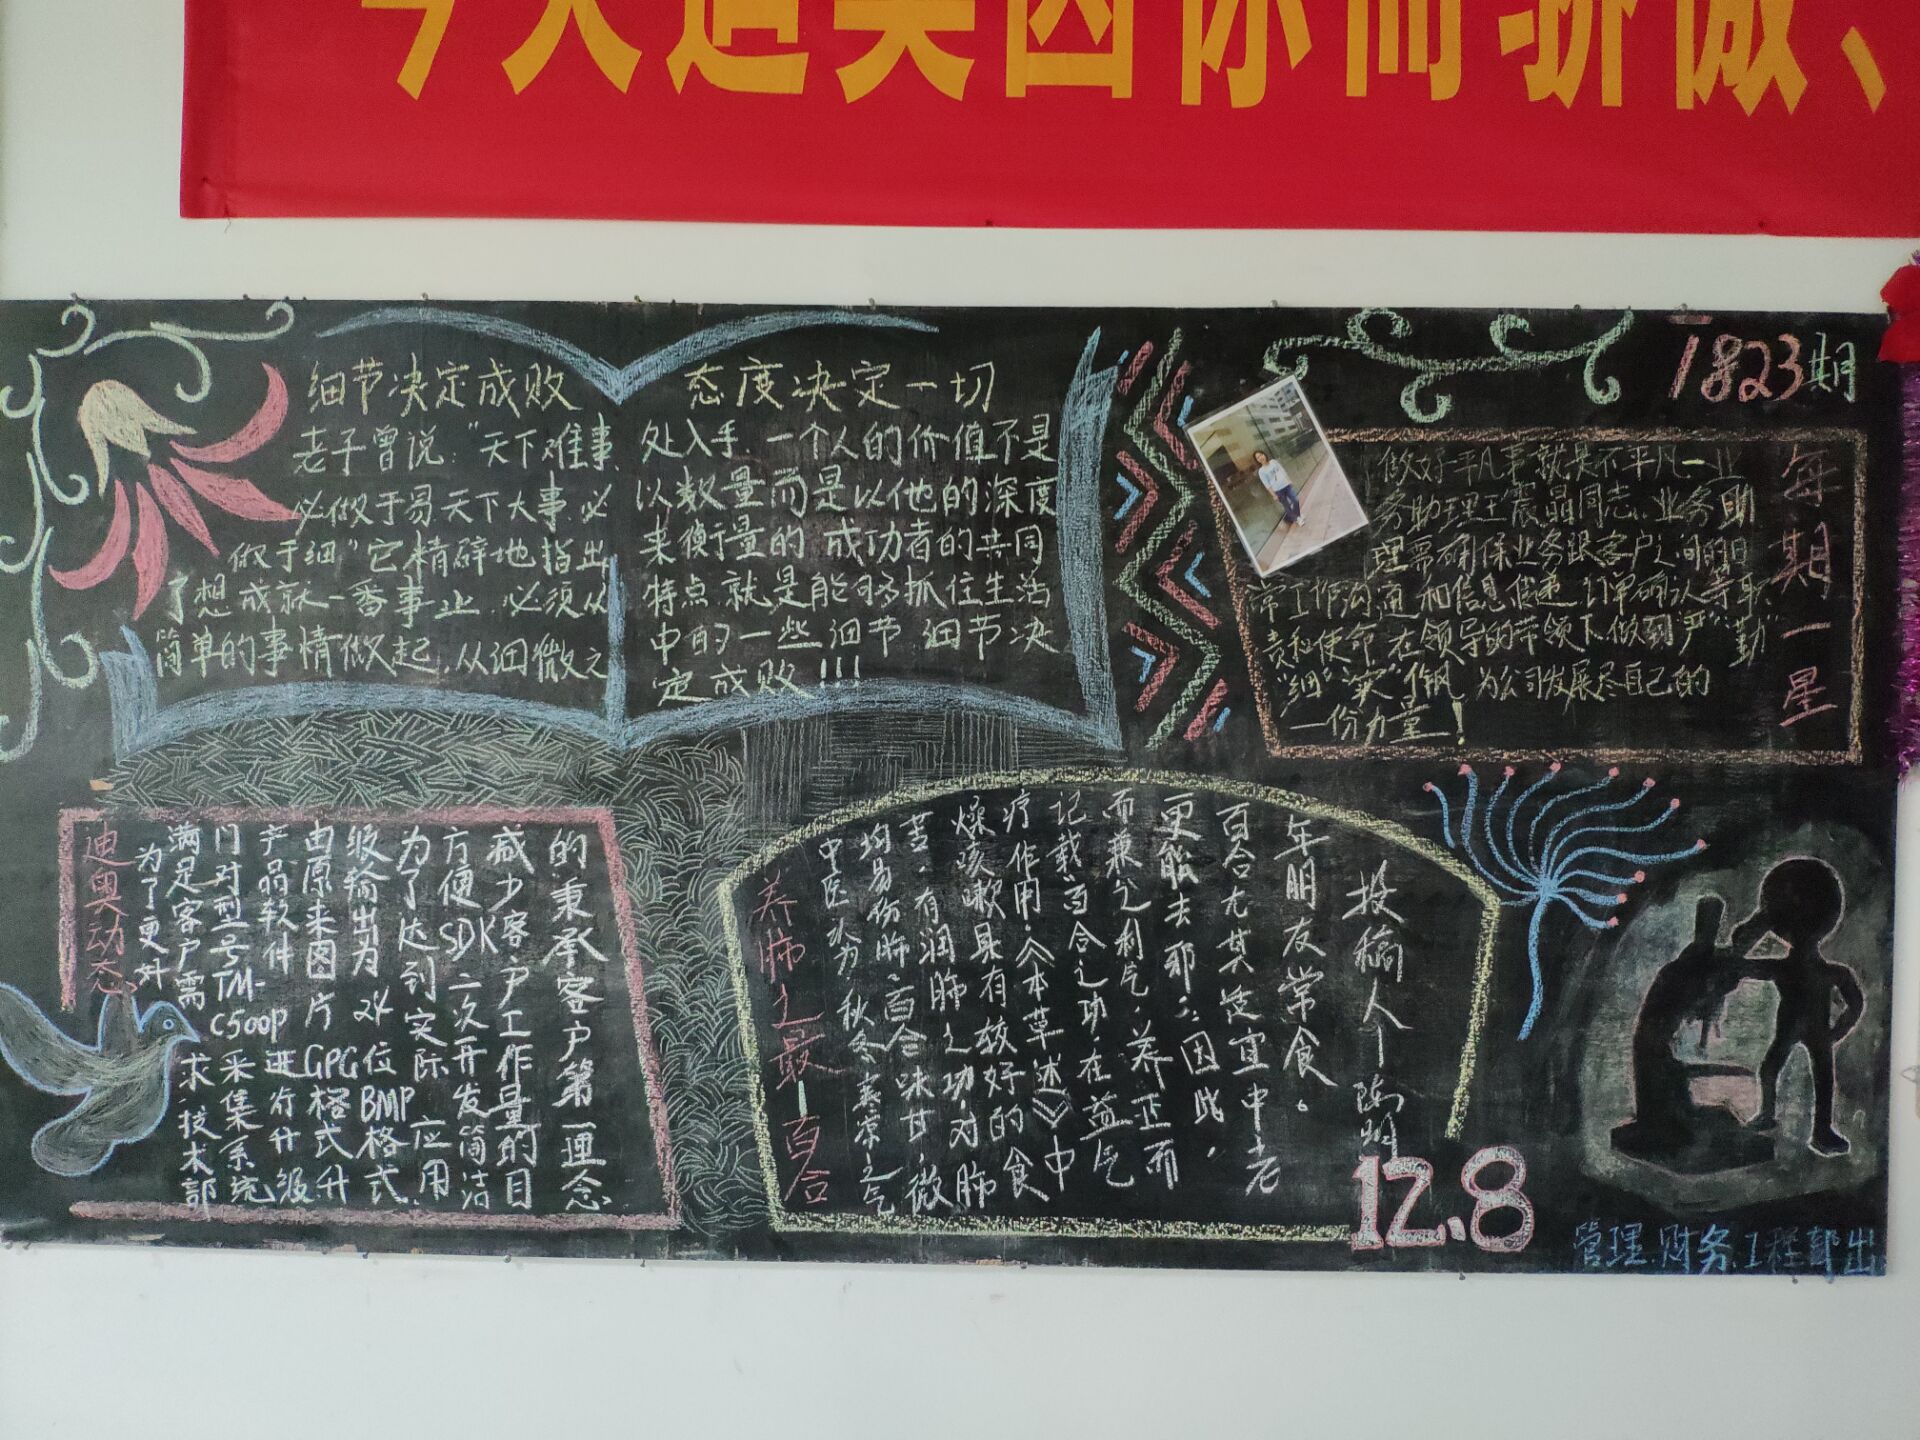 今天迪奥因你而骄傲、
1823期
细节决定成败
老子曾说:"天下难事、
必做于易天下大事、必
做于细"它精辟地指出
了想成就一番事业、必须从
简单的事情做起,从细微之
态度决定一切
处入手、一个人的价值不是
以数量而是以他的深度
来衡量的,成功者的共同
特点就是能够抓住生活
中的一些细节,细节决
定成败!!!
每期一星
做好平凡事就是不平凡一业
务助理王晨晶同志、业务助
理需确保业务跟客户之间的日
常工作沟通和信息传递、订单确认等职
责和使命、在领导的带领下做到"严""勤"
"细""实"作风,为公司发展尽自己的
一份力量!
迪奥动态
为了更好
满足客户需求,技术部
门对型号TM-C500P采集系统
产品软件进行升级
由原来图片GPG格式升
级输出为24位BMP格式
为了达到实际应用
方便SDK二次开发简洁
减少客户工作量的目
的秉承客户第一理念
养肺之最—百合
中医认为秋冬寒凉之气
均易伤肺,百合味甘,微
苦,有润肺之功,对肺
燥咳嗽具有较好的食
疗作用,《本草述》中
记载"百合之功,在益气
而兼之利气,养正而
更能去邪",因此,
百合尤其适宜中老
年朋友常食。
投稿人:陈明
12.8
管理.财务.工程部出